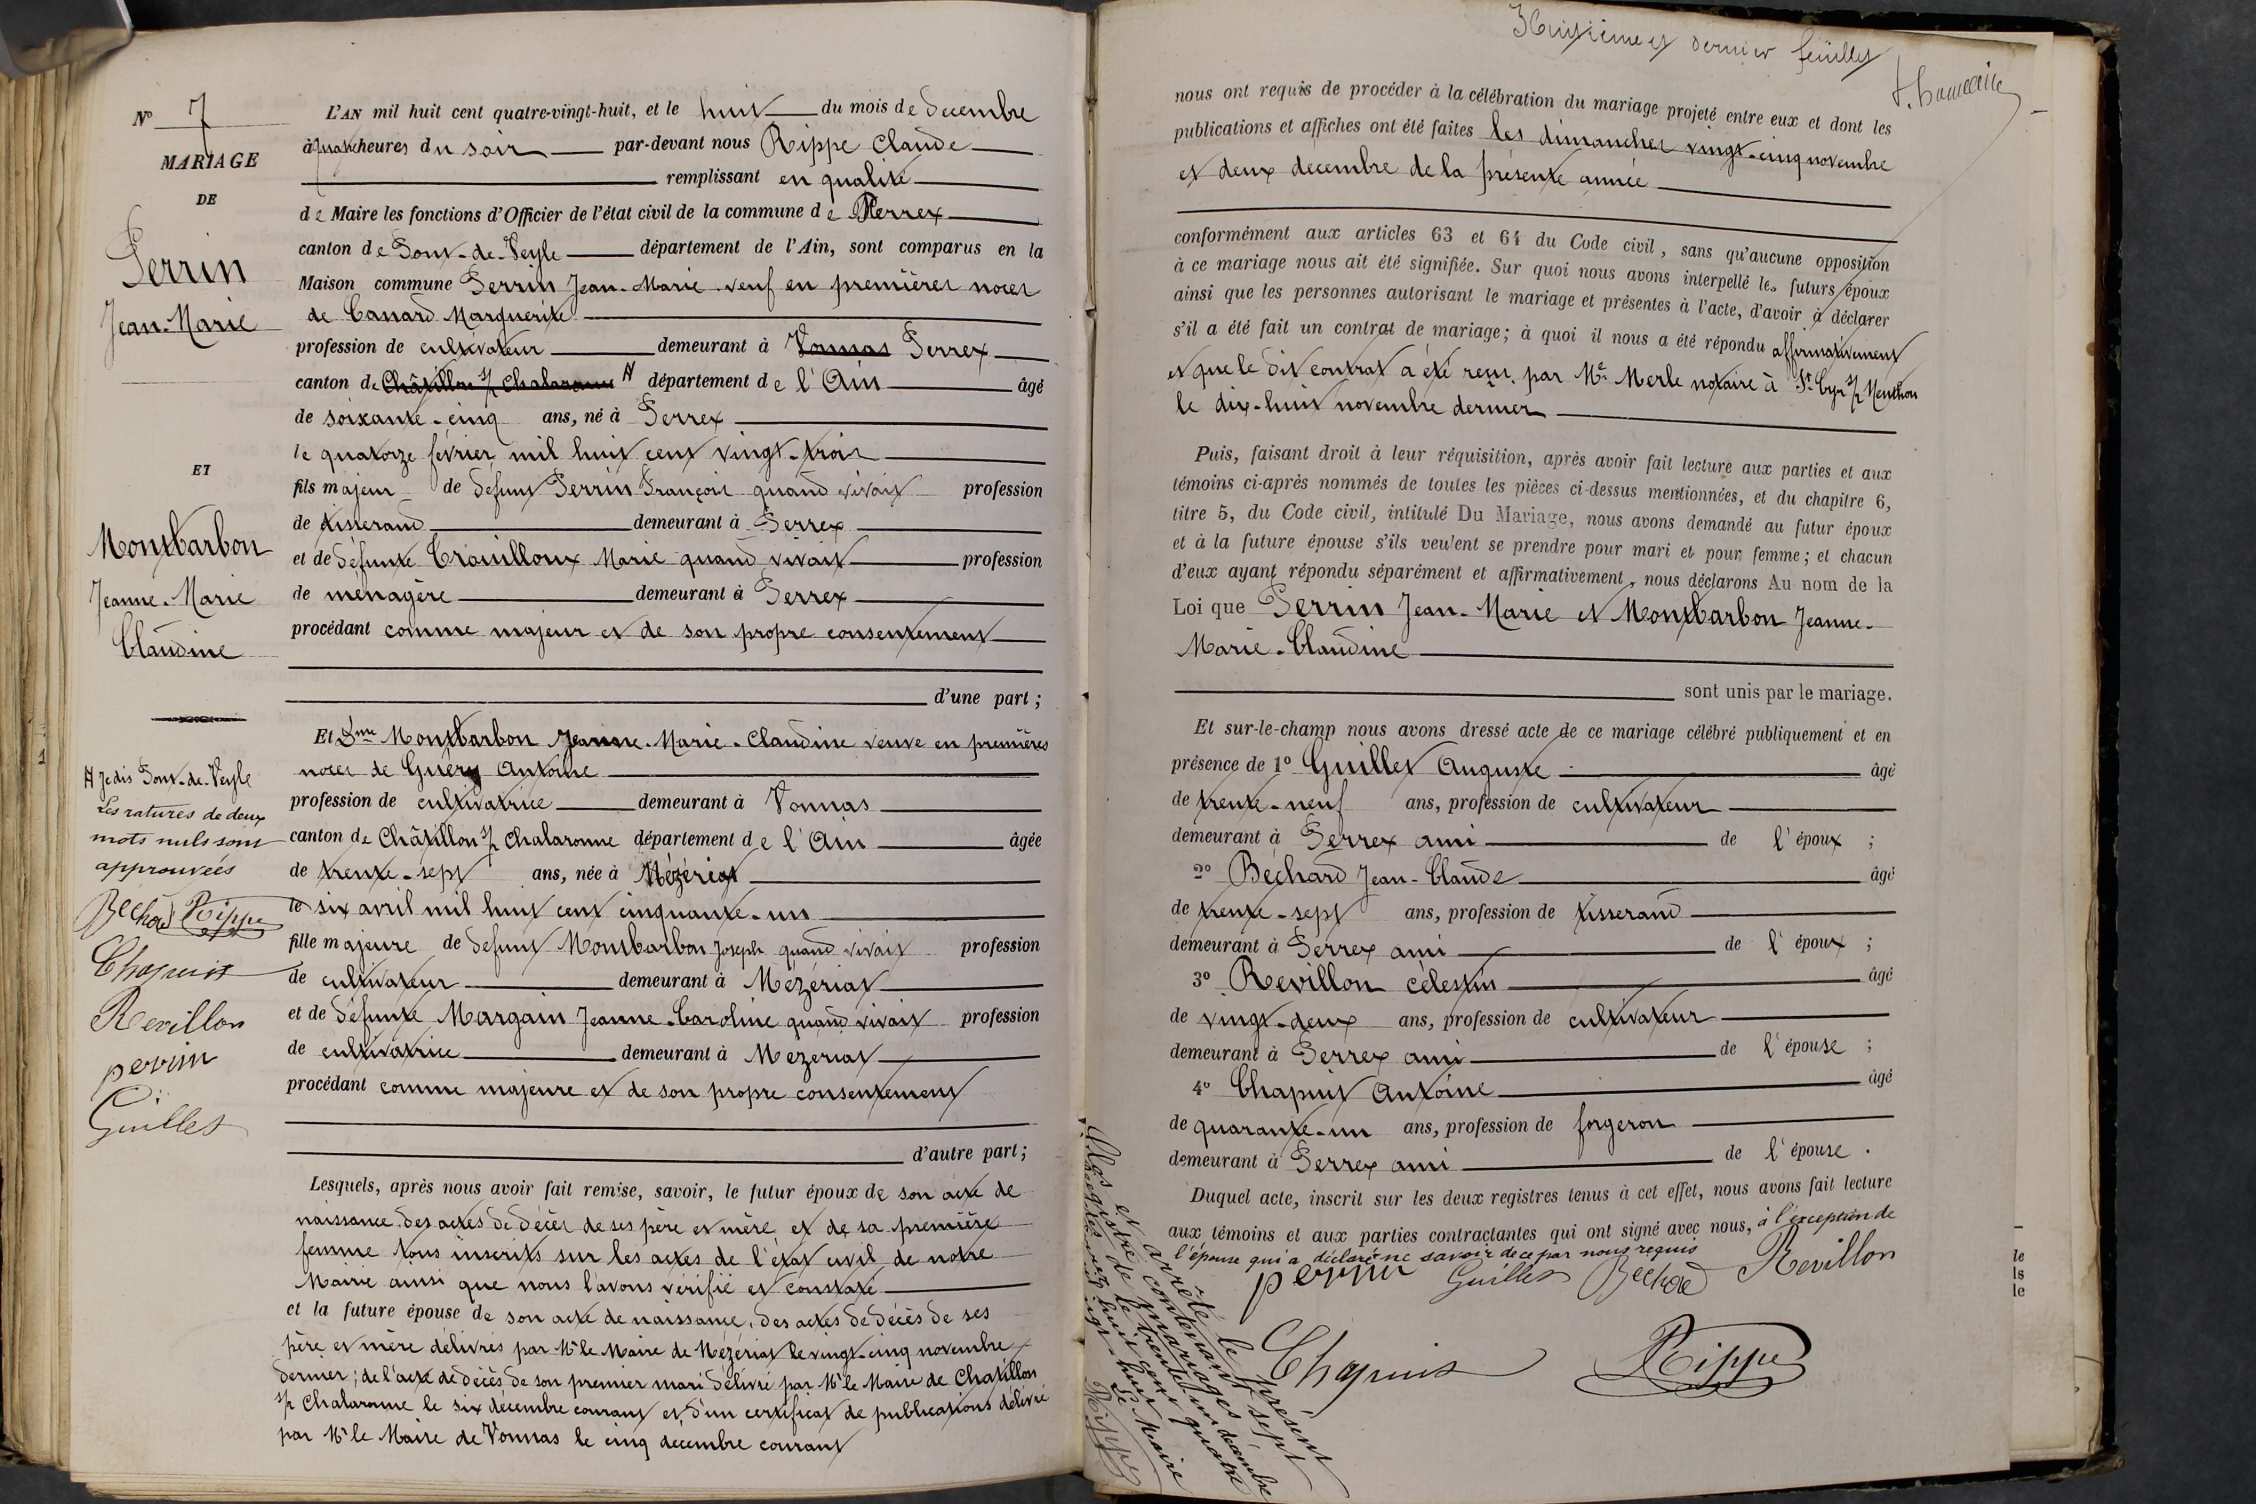 No 7
MARIAGE
DE
Perrin
Jean-Marie
ET
Montbarbon
Jeanne-Marie
Claudine
A Je dis Pont-de-Veyle
Les ratures de deux
mots nuls sont
approuveés
Bechard Rippe
Chapuis
Revillon
perrin
Guillet
L'AN mil huit cent quatre-vingt-huit, et le huit du mois de decembre
à quatre heures du soir par-devant nous Rippe Claude
remplissant en qualité
de Maire les fonctions d'Officier de l'état civil de la commune de Perrex
canton de Pont-de-Veyle département de l'Ain, sont comparus en la
Maison commune Perrin Jean-Marie veuf en premières noces
de Canard Marguerite
profession de cultivateur demeurant à Vonnas Perrex
canton de Châtillon s/ Chalaronne A département de l'Ain âgé
de soixante-cinq ans, né à Perrex
le quatorze février mil huit cent vingt-trois
fils majeur de défunt Perrin François quand vivait profession
de tisserand demeurant à Perrex
et de défunte Trouilloux Marie quand vivait profession
de ménagère demeurant à Perrex
procédant comme majeur et de son propre consentement
d'une part;
Et Dme Montbarbon Jeanne-Marie-Claudine veuve en premières
noces de Guéry Antoine
profession de cultivatrice demeurant à Vonnas
canton de Châtillon s/ Chalaronne département de l'Ain âgée
de trente-sept ans, née à Mézériat
le six avril mil huit cent cinquante-un
fille majeure de défunt Montbarbon Joseph quand vivait profession
de cultivateur demeurant à Mézériat
et de défunte Margain Jeanne-Caroline quand vivait profession
de cultivatrice demeurant à Mezeriat
procédant comme majeure et de son propre consentement
d'autre part;
Lesquels, après nous avoir fait remise, savoir, le futur époux de son acte de
naissance des actes de décès de ses père et mère et de sa première
femme tous inscrits sur les actes de l'état civil de notre
Mairie ainsi que nous l'avons vérifié et constaté
et la future épouse de son acte de naissance, des actes de décès de ses
père et mère délivrés par Mr le Maire de Mézériat le vingt-cinq novembre
dernier; de l'acte de décès de son premier mari délivré par Mr le Maire de Chatillon
s/ Chalaronne le six décembre courant et d'un certificat de publications délivré
par Mr le Maire de Vonnas le cinq décembre courant
Huitième et dernier feuillet
nous ont requis de procéder à la célébration du mariage projeté entre eux et dont les
publications et affiches ont été faites les dimanches vingt-cinq novembre
et deux décembre de la présente année
conformément aux articles 63 et 64 du Code civil, sans qu'aucune opposition
à ce mariage nous ait été signifiée. Sur quoi nous avons interpellé les futurs époux
ainsi que les personnes autorisant le mariage et présentes à l'acte, d'avoir à déclarer
s'il a été fait un contrat de mariage; à quoi il nous a été répondu affirmativement
et que le dit contrat a été reçu par Me Merle notaire à St Cyr s/ Menthon
le dix-huit novembre dernier
Puis, faisant droit à leur réquisition, après avoir fait lecture aux parties et aux
témoins ci-après nommés de toutes les pièces ci-dessus mentionnées, et du chapitre 6,
titre 5, du Code civil, intitulé Du Mariage, nous avons demandé au futur époux
et à la future épouse s'ils veulent se prendre pour mari et pour femme; et chacun
d'eux ayant répondu séparément et affirmativement, nous déclarons Au nom de la
Loi que Perrin Jean-Marie et Montbarbon Jeanne-
Marie-Claudine
sont unis par le mariage.
Et sur-le-champ nous avons dressé acte de ce mariage célébré publiquement et en
présence de 1o Guillet Auguste âgé
de trente-neuf ans, profession de cultivateur
demeurant à Perrex ami de l'époux ;
2o Bechard Jean-Claude âgé
de trente-sept ans, profession de tisserand
demeurant à Perrex ami de l'époux ;
3o Revillon célestin âgé
de vingt-deux ans, profession de cultivateur
demeurant à Perrex ami de l'épouse ;
4o Chapuit Antoine âgé
de quarante-un ans, profession de forgeron
demeurant à Perrex ami de l'épouse .
Duquel acte, inscrit sur les deux registres tenus à cet effet, nous avons fait lecture
aux témoins et aux parties contractantes qui ont signé avec nous, à l'exception de
l'épouse qui a déclaré ne savoir de ce par nous requis
perrin Guillet Bechard Revillon
Chapuis Rippe
Clos et arrêté le présent
registre contenant sept
mariages
le trente et un décembre
mil huit cent quatre
vingt-huit
Le Maire
Rippe
le
ls
le